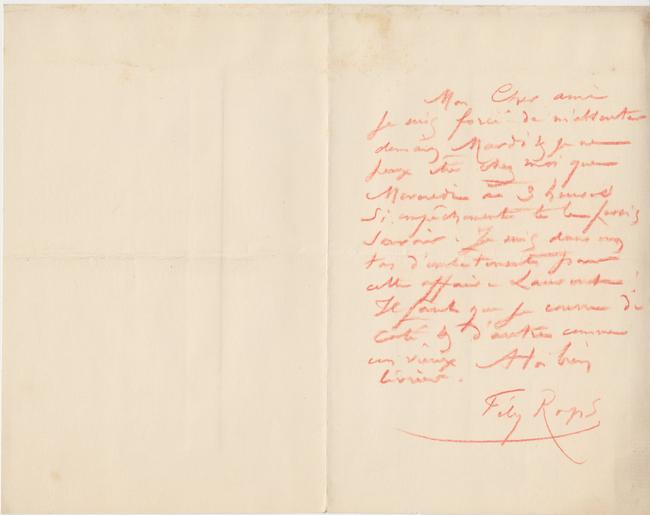 Mon Cher ami
Je suis forcé de m'absenter
demain Mardi & je ne
peux être chez moi que
Mercredi à 3 heures
Si empêchements te le ferais
savoir. Je suis dans un
tas d'embêtements pour
cette affaire
Il faut que je courre de
coté & d'autre comme
un vieux A toi bien
Fély Rops